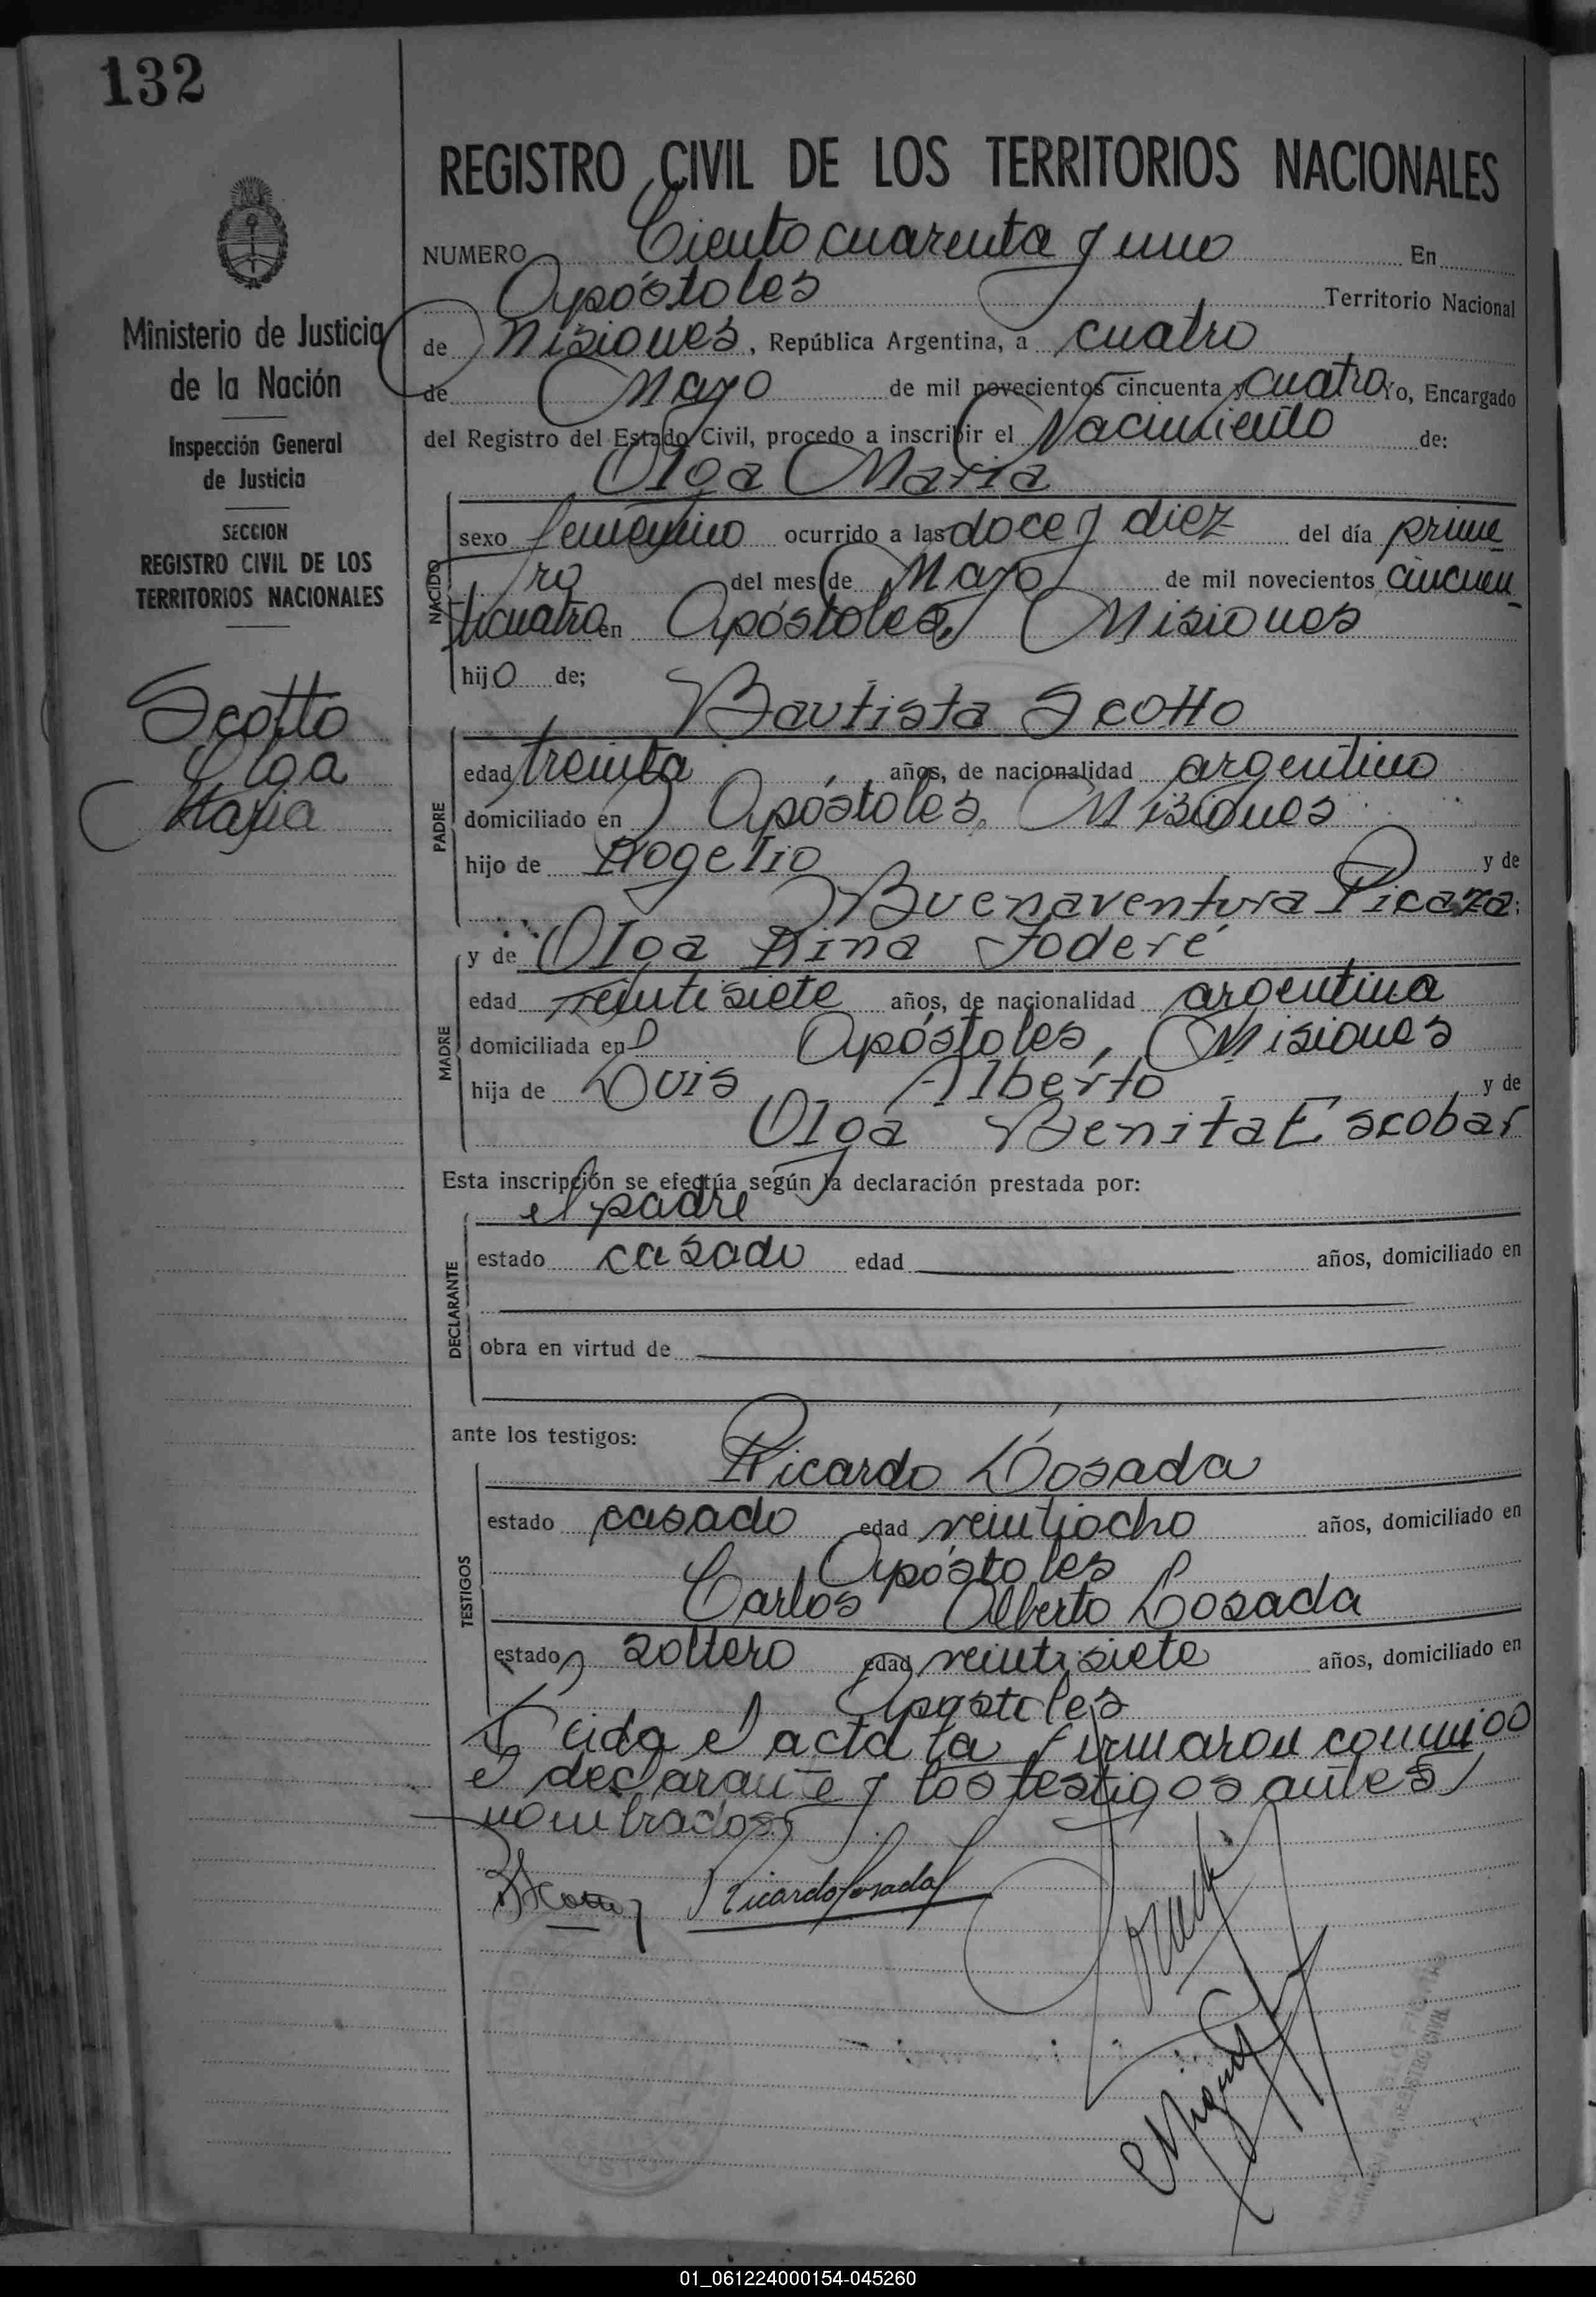 132
REGISTRO CIVIL DE LOS TERRITORIOS NACIONALES
Ministerio de Justicia
de la Nación
Inspección General
de Justicia
SECCION
REGISTRO CIVIL DE LOS
TERRITORIOS NACIONALES
Scotto
Olga
Maria
NUMERO Ciento cuarenta y uno En
Apóstoles Territorio Nacional
de Misiones, República Argentina, a cuatro
de Mayo de mil novecientos cincuenta y cuatro Yo, Encargado
del Registro del Estado Civil, procedo a inscribir el Nacimiento de:
Olga Maria
NACIDO
sexo femenino ocurrido a las doce y diez del día prime
ro del mes de Mayo de mil novecientos cincuen
ticuatro en Apóstoles, Misiones
hijo de;
Bautista Scotto
PADRE
edad treinta años, de nacionalidad argentino
domiciliado en Apóstoles, Misiones
hijo de Rogelio y de
Buenaventura Picaza;
y de Olga Rina Foderé
MADRE
edad veintisiete años, de nacionalidad argentina
domiciliada en Apóstoles, Misiones
hija de Luis Alberto y de
Olga Benita Escobar
Esta inscripción se efectúa según la declaración prestada por:
el padre
DECLARANTE
estado casado edad años, domiciliado en
obra en virtud de
ante los testigos:
Ricardo Losada
TESTIGOS
estado casado edad veintiocho años, domiciliado en
Apóstoles
Carlos Alberto Losada
estado soltero edad veintisiete años, domiciliado en
Apostoles
Leida el acta la firmaron conmigo
el declarante y los testigos antes
nombrados
BScotto Ricardo Losada
Miguel
REGISTRO CIVIL
01_061224000154-045260